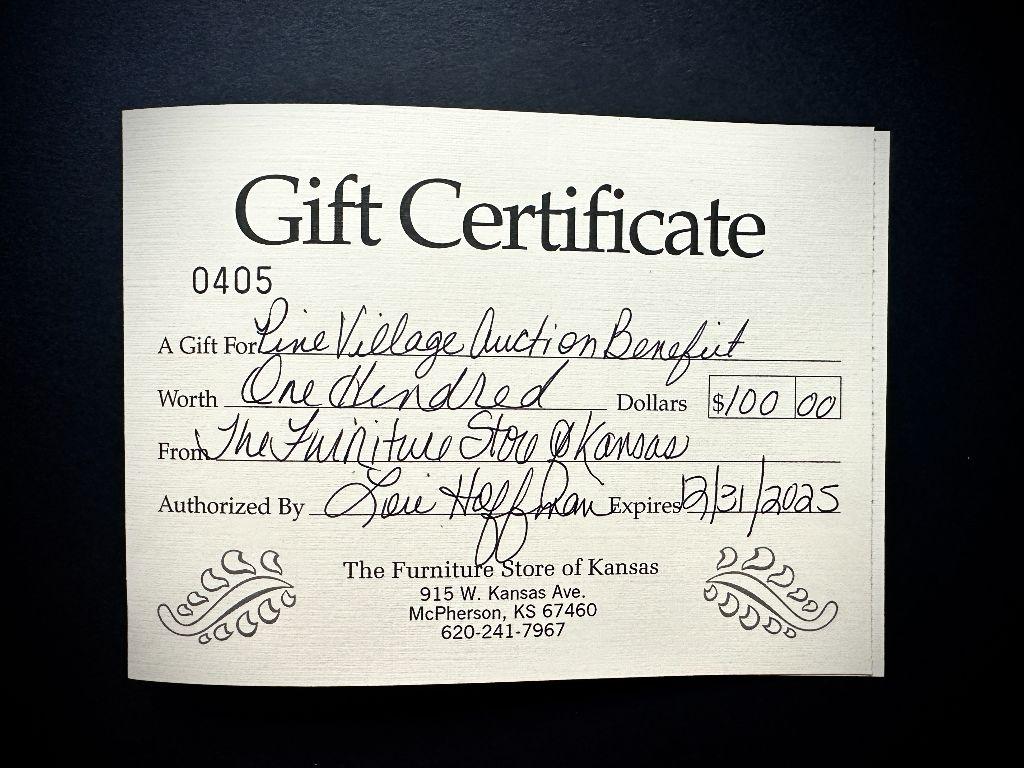 Gift Certificate
0405
A Gift For Pine Village Auction Benefit
Worth One Hundred Dollars $100 00
From The Furniture Store of Kansas
Authorized By Lorie Hoffman Expires 12/31/2025
The Furniture Store of Kansas
915 W. Kansas Ave.
McPherson, KS 67460
620-241-7967